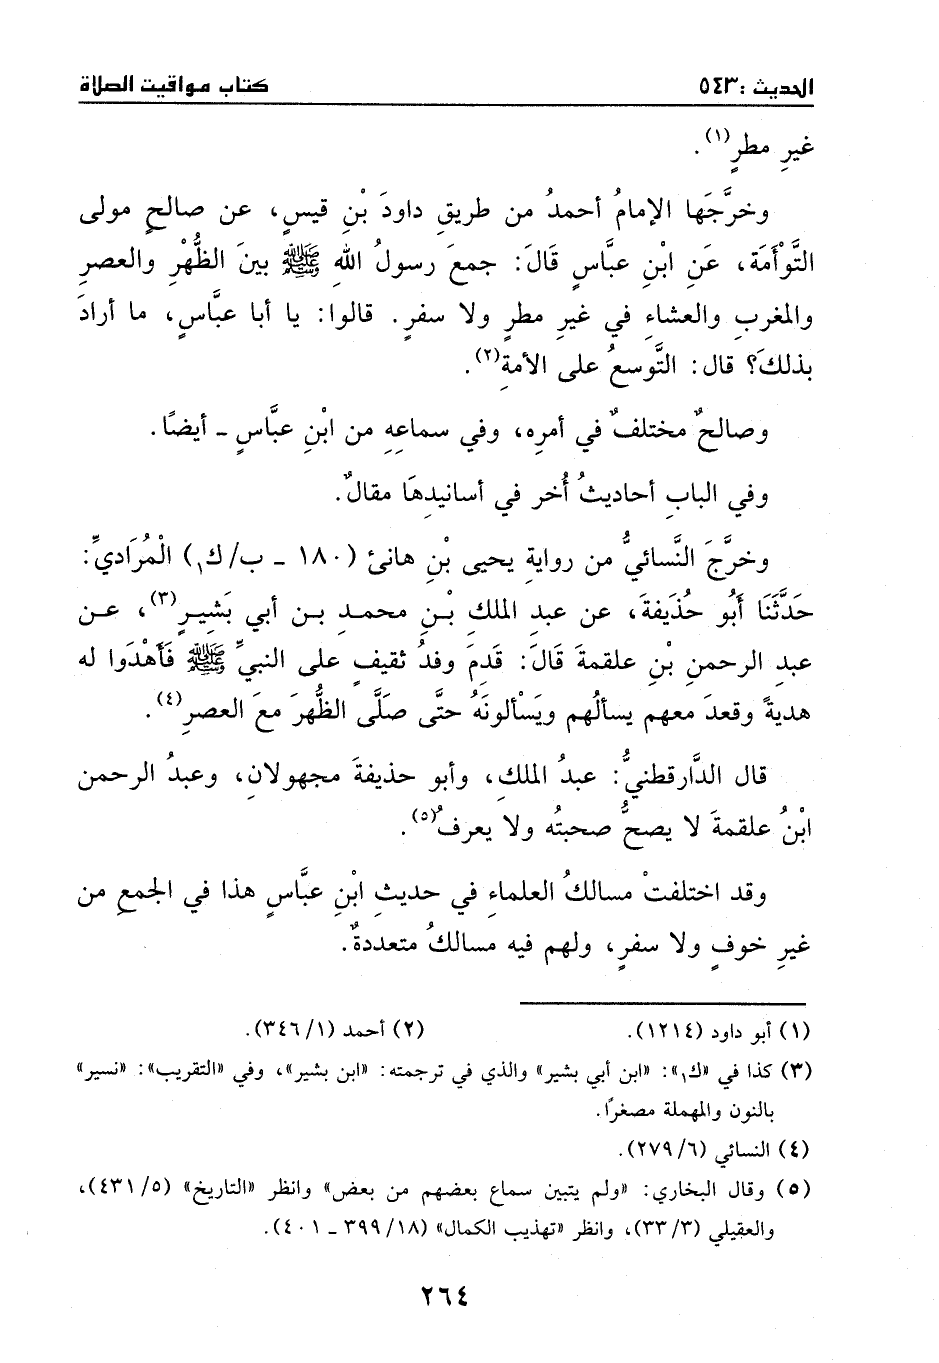 الحديث : ٥٤٣
كتاب مواقيت الصلاة
غيرِ مطرٍ(١).
وخرَّجَها الإمامُ أحمدُ من طريقِ داودَ بْنِ قيسٍ، عن صالحٍ مولى
التَّوْأَمَة، عَنِ ابْنِ عبَّاسٍ قَالَ: جمعَ رسولُ اللهِ ﷺ بينَ الظُّهْرِ والعصرِ
والمغربِ والعشاءِ في غيرِ مطرٍ ولا سفرٍ. قالوا: يا أبا عبَّاسٍ، ما أرادَ
بذلكَ؟ قال: التَّوسعُ على الأمةِ(٢).
وصالحٌ مختلفٌ في أمرِه، وفي سماعِهِ من ابْنِ عبَّاسٍ ـ أيضًا.
وفي البابِ أحاديثُ أُخر في أسانيدِهَا مقالٌ.
وخرَّجَ النَّسائيُّ من روايةِ يحيى بْنِ هانئ (١٨٠ ـ ب/ ك١) الْمُرَاديِّ:
حَدَّثَنَا أَبُو حُذَيفةَ، عن عبدِ الملكِ بْنِ محمدِ بن أبي بَشيرٍ(٣)، عن
عبدِ الرحمنِ بْنِ علقمةَ قَالَ: قَدِمَ وفدُ ثقيفٍ على النبيِّ ﷺ فَأَهْدَوا له
هديةً وقعدَ معهم يسألُهم ويَسألونَهُ حتَّى صَلَّى الظُّهرَ معَ العصرِ(٤).
قال الدَّارقطنيُّ: عبدُ الملكِ، وأبو حذيفةَ مجهولانِ، وعبدُ الرحمن
ابْنُ علقمةَ لا يصحُّ صحبتُه ولا يعرفُ(٥).
وقد اختلفتْ مسالكُ العلماءِ في حديثِ ابْنِ عبَّاسٍ هذا في الجمعِ من
غيرِ خوفٍ ولا سفرٍ، ولهم فيه مسالكُ متعددةٌ.
(١) أبو داود (١٢١٤).
(٢) أحمد (١/ ٣٤٦).
(٣) كذا في «ك١»: «ابن أبي بشير» والذي في ترجمته: «ابن بشير»، وفي «التقريب»: «نسير»
بالنون والمهملة مصغرًا.
(٤) النسائي (٦/ ٢٧٩).
(٥) وقال البخاري: «ولم يتبين سماع بعضهم من بعض» وانظر «التاريخ» (٥/ ٤٣١)،
والعقيلي (٣/ ٣٣)، وانظر «تهذيب الكمال» (١٨/ ٣٩٩ ـ ٤٠١).
٢٦٤